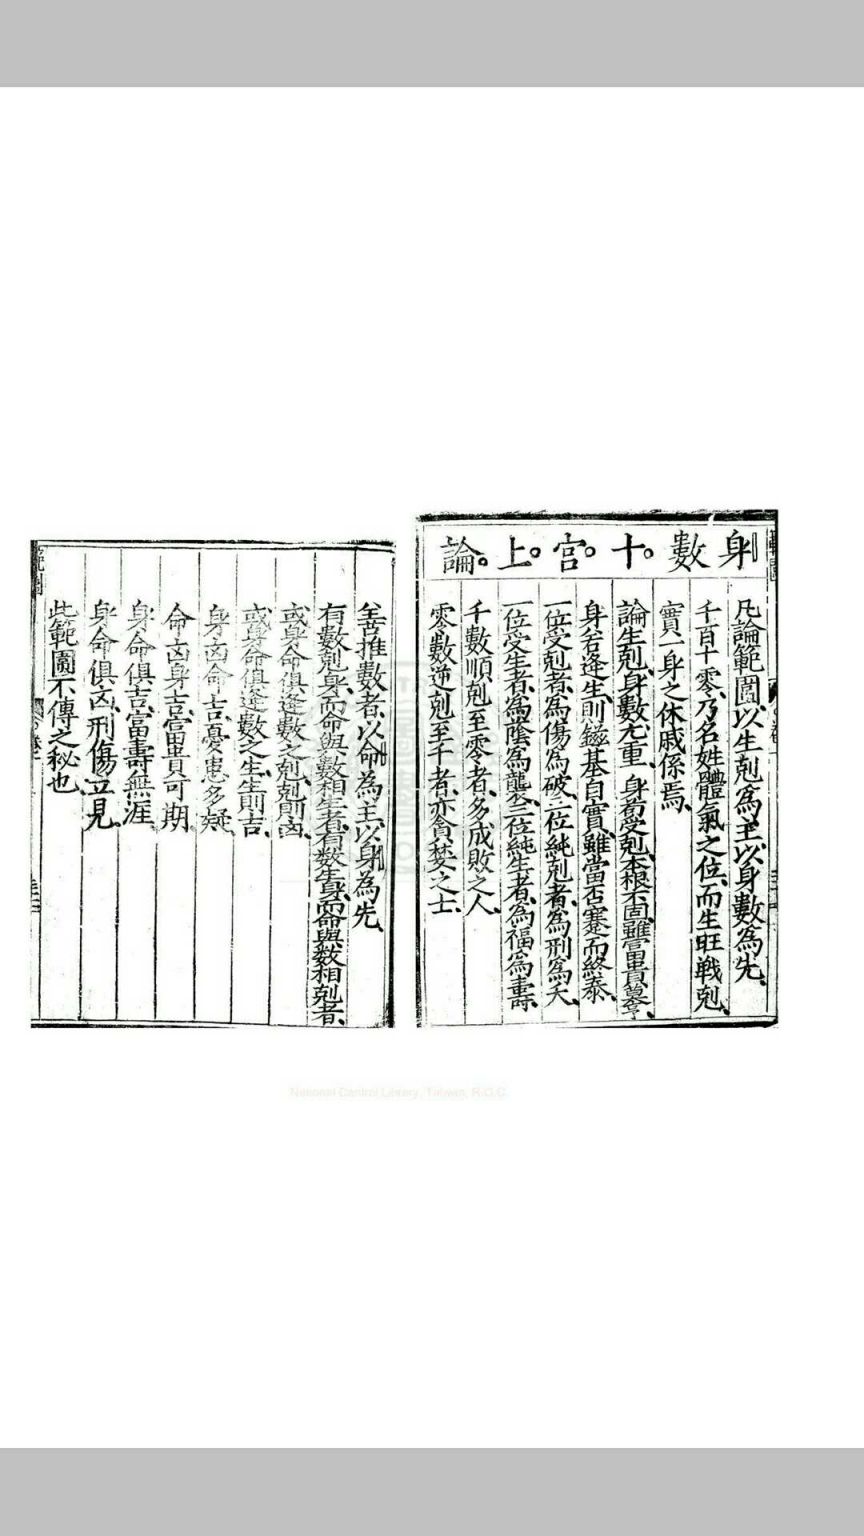 身數十宮上論
凡論範圍以生剋為主以身數為先
千百十零乃名姓體氣之位而生旺戰剋
實一身之休戚係焉
論生剋身數尤重身若受剋本根不固雖富貴
身若逢生則鎡基自實雖當否蹇而終泰
一位受剋者為傷為破三位純剋者為刑為夭
一位受生者為蔭為襲三位純生者為福為壽
千數順剋至零者多成敗之人
零數逆剋至千者亦貪婪之士
善推數者以命為主以身為先
有數剋身而命與數相生者有數生身而命與數相剋者
或身命俱逢數之剋剋則凶
或身命俱逢數之生生則吉
身凶命吉憂患多疑
命凶身吉富貴可期
身命俱吉富壽無涯
身命俱凶刑傷立見
此範圍不傳之秘也
National Central Library, Taiwan, R.O.C.